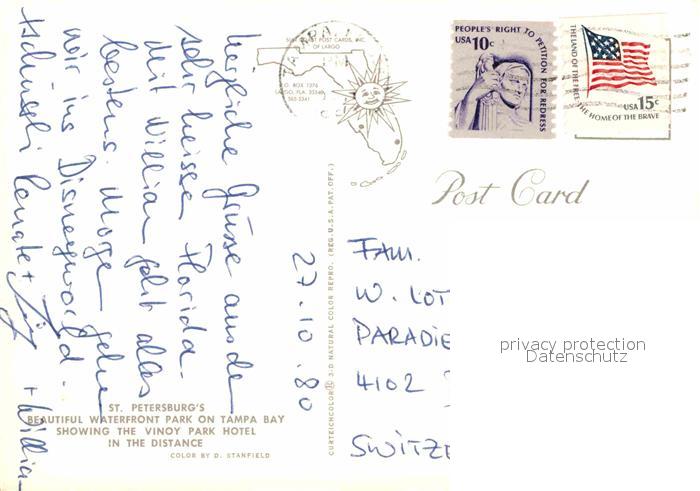 SUN COAST POST CARDS, INC.
OF LARGO
P.O. BOX 1276
LARGO, FLA. 33540
PEOPLE'S RIGHT TO PETITION FOR REDRESS
USA 10c
THE LAND OF THE FREE THE HOME OF THE BRAVE
USA 15c
Post Card
herzliche Grüsse aus dem
sehr heissen Florida.
Mit William geht alles
bestens. Morge gehn
wir ins Disneyworld.
tschüssli Renate +
+ William
27.10.80
CURTEICHCOLOR® 3-D NATURAL COLOR REPRO. (REG. U.S.A. PAT. OFF.)
FAM.
W. LOT
PARADIE
4102
SWITZE
privacy protection
Datenschutz
ST. PETERSBURG'S
BEAUTIFUL WATERFRONT PARK ON TAMPA BAY
SHOWING THE VINOY PARK HOTEL
IN THE DISTANCE
COLOR BY D. STANFIELD